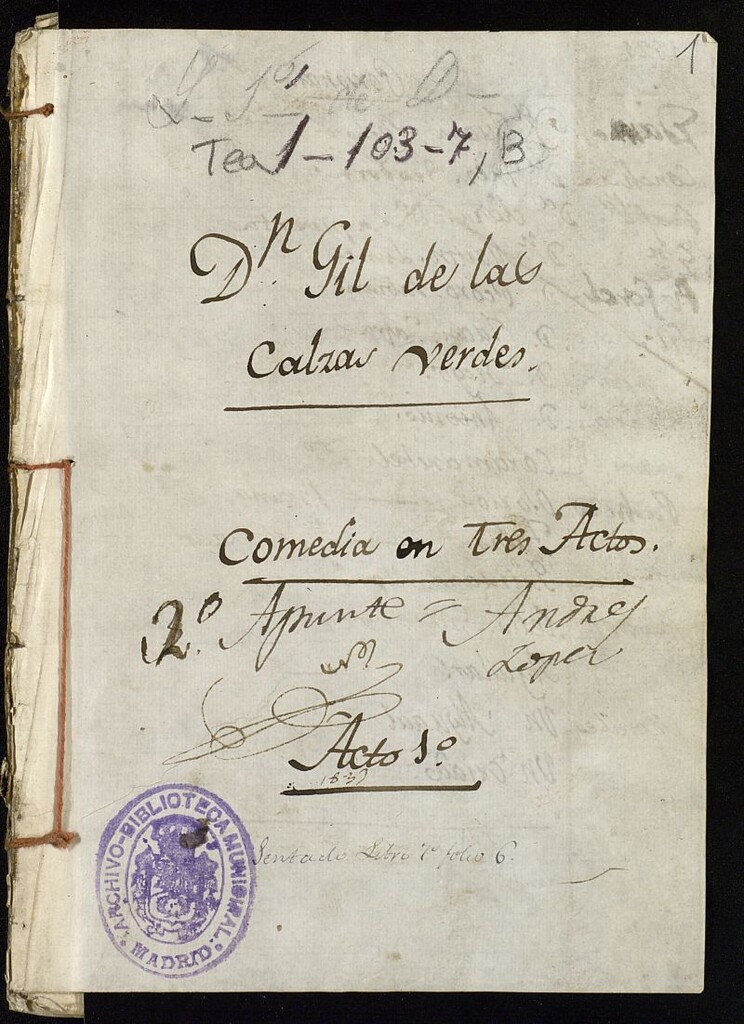 1
Tea 1-103-7, B
Dn Gil de las
Calzas verdes.
Comedia en Tres Actos.
2º Apunte = Andres
Lopez
Acto 1º
1839
Sentado Libro 1º folio 6.
ARCHIVO-BIBLIOTECA MUNICIPAL
MADRID